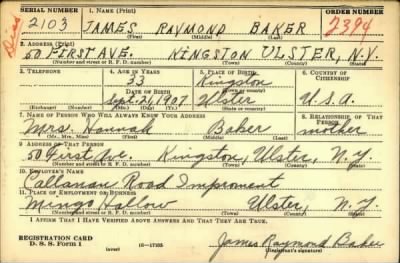 SERIAL NUMBER 1. NAME (Print) ORDER NUMBER
Dies 2103 JAMES RAYMOND BAKER 2394
(First) (Middle) (Last)
2. ADDRESS (Print)
50 FIRST AVE. KINGSTON ULSTER, N.Y.
(Number and street or R. F. D. number) (Town) (County) (State)
3. TELEPHONE 4. AGE IN YEARS 5. PLACE OF BIRTH 6. COUNTRY OF CITIZENSHIP
33 Kingston
DATE OF BIRTH (Town or county)
Sept. 21, 1907 Ulster U.S.A.
(Exchange) (Number) (Mo.) (Day) (Yr.) (State or country)
7. NAME OF PERSON WHO WILL ALWAYS KNOW YOUR ADDRESS 8. RELATIONSHIP OF THAT PERSON
Mrs. Hannah Baker mother
(Mr., Mrs., Miss) (First) (Middle) (Last)
9. ADDRESS OF THAT PERSON
50 First Ave. Kingston, Ulster, N.Y.
(Number and street or R. F. D. number) (Town) (County) (State)
10. EMPLOYER'S NAME
Callanan Road Improment
11. PLACE OF EMPLOYMENT OR BUSINESS
Mingo Hallow Ulster, N.Y.
(Number and street or R. F. D. number) (Town) (County) (State)
I AFFIRM THAT I HAVE VERIFIED ABOVE ANSWERS AND THAT THEY ARE TRUE.
REGISTRATION CARD
D. S. S. FORM 1 (over) 16—17105 James Raymond Baker
(Registrant's signature)